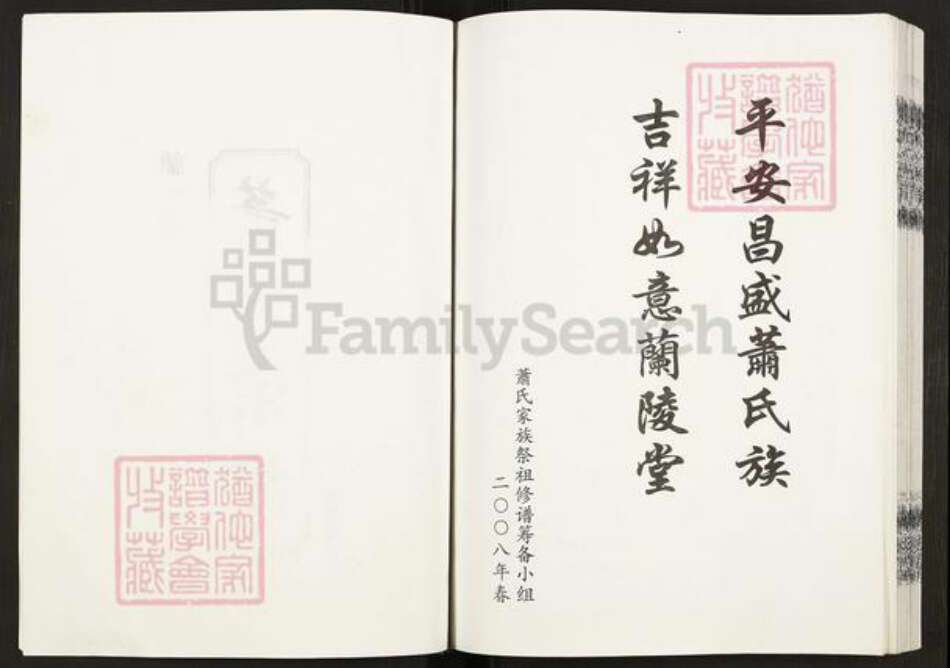 平安昌盛蕭氏族
吉祥如意蘭陵堂
蕭氏家族祭祖修谱筹备小组
二〇〇八年春
猶他家
譜學會
收藏
FamilySearch
猶他家
譜學會
收藏